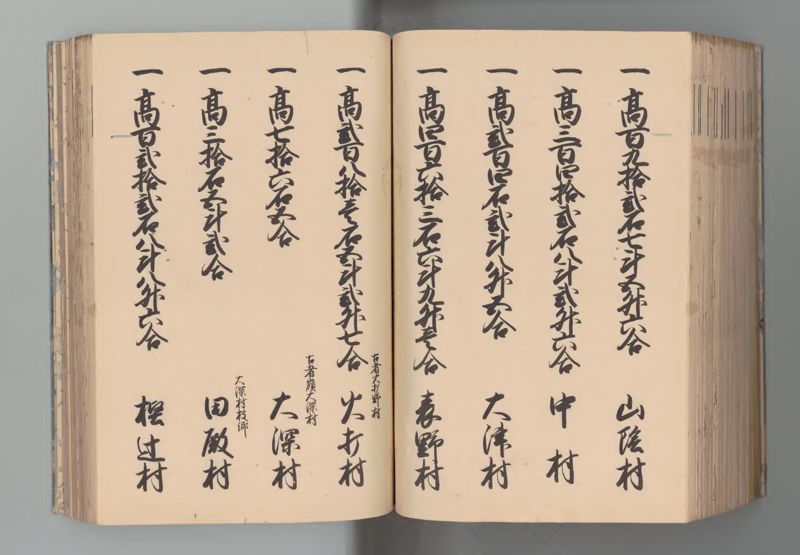 一 高百九拾弐石七斗五升六合 山陰村
一 高三百四拾弐石八斗弐升六合 中村
一 高弐百四石弐斗八升五合 大津村
一 高四百六拾三石六斗九升壱合 表野村
一 高弐百八拾壱石五斗弐升七合 火打村
古者大打野村
一 高七拾六石五合 大深村
古者嶺大深村
一 高三拾石五斗弐合 田殿村
大深村枝郷
一 高百弐拾弐石八斗八升六合 樫辻村